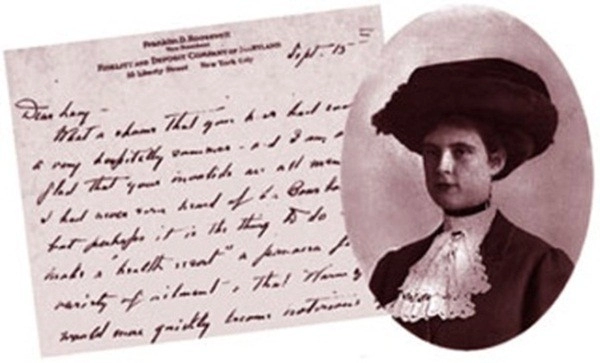 Franklin D. Roosevelt
Vice President
FIDELITY AND DEPOSIT COMPANY OF MARYLAND
55 Liberty Street New York City
Sept. 15
Dear
What a shame that you have had such
a very hospitally summer - and I am
glad that your invalids are all
I had never even heard of
but perhaps it is the thing to do
make a "health resort" a panacea
variety of ailments & that Warm
would more quickly become notorious